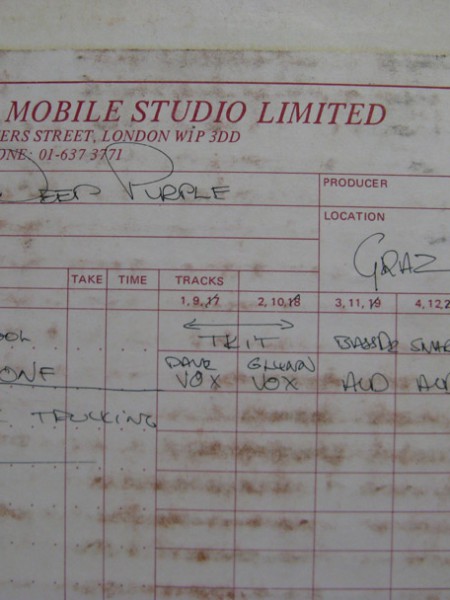 MOBILE STUDIO LIMITED
ERS STREET, LONDON W1P 3DD
ONE: 01-637 3771
DEEP PURPLE
PRODUCER
LOCATION
GRAZ
TAKE TIME TRACKS
1, 9, 17 2, 10, 18 3, 11, 19 4, 12, 2
OOL TKIT BASS DR SNAR
ONE DAVE VOX GLENN VOX AUD AUD
TRUCKING